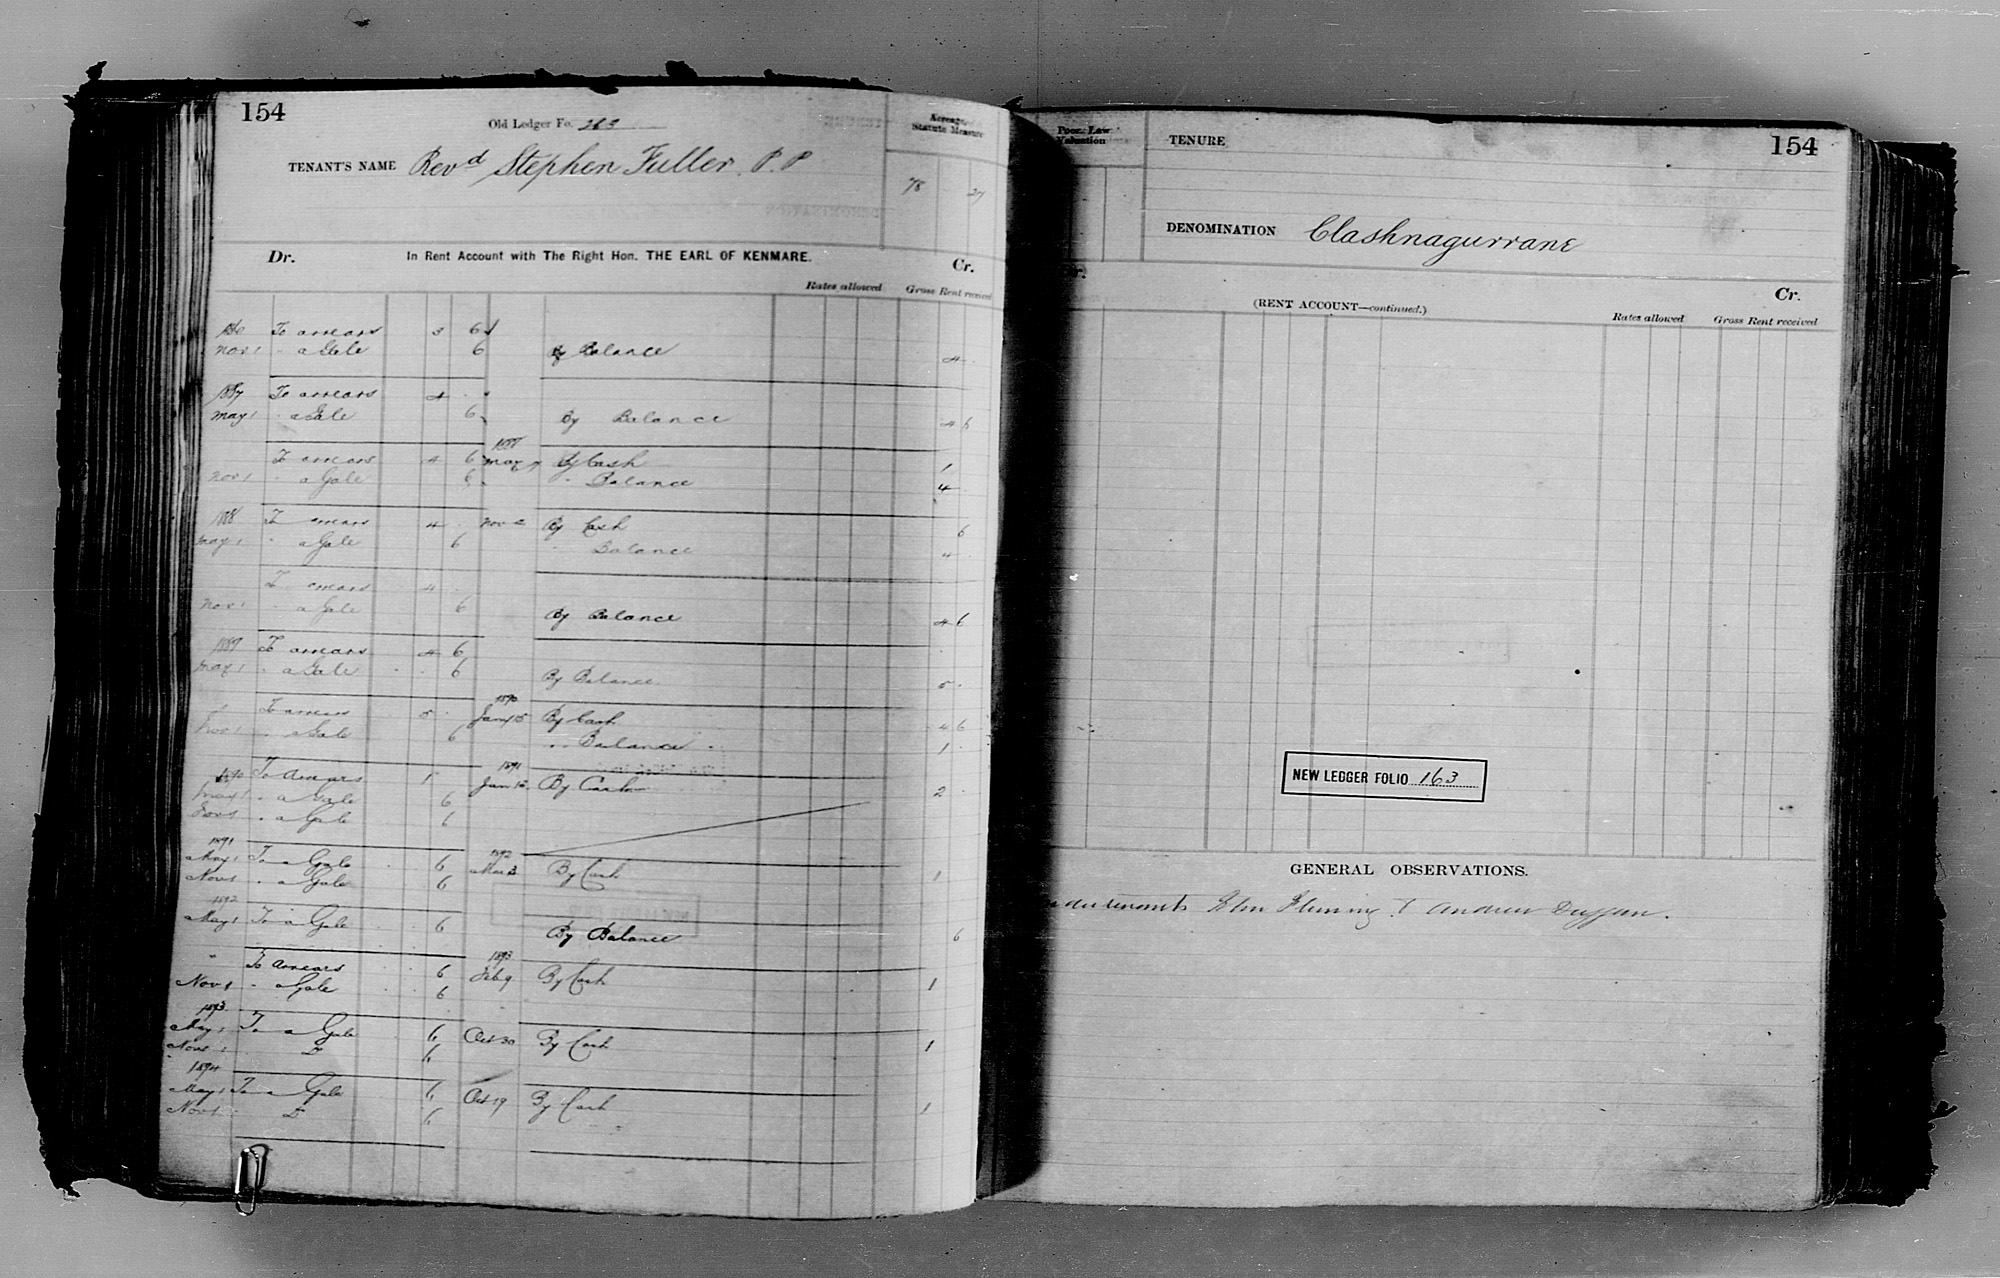 154
Old Ledger Fo. 263
Acreage Statute Measure
TENANT'S NAME Revd Stephen Fuller. P.P
78 27
Dr. In Rent Account with The Right Hon. THE EARL OF KENMARE. Cr.
Rates allowed Gross Rent received
To arrears 3 6
Nov 1 " a Gale 6 By Balance 4
1887 To arrears 4
May 1 " a Gale 6 By Balance 4 6
1888
To arrears 4 6 May By Cash 1
Nov 1 " a Gale 6 " Balance 4
1888 To arrears 4 Nov By Cash 6
May 1 " a Gale 6 Balance 4
To arrears 4
Nov 1 " a Gale 6 By Balance 4 6
1889 To arrears 4 6
May 1 " a Gale 6 By Balance 5
1890
To arrears 5 Jany 15 By Cash 4 6
Nov 1 " a Gale 6 " Balance 1
1891
1890 To arrears 1 Jan By Cash 2
May 1 " a Gale 6
Nov 1 " a Gale 6
1891 1892
May 1 To a Gale 6 Mar By Cash 1
Nov 1 " a Gale 6
1892
May 1 To a Gale 6 By Balance 6
1893
" To arrears 6 Feb 9 By Cash 1
Nov 1 " a Gale 6
1893
May 1 To a Gale 6 Oct 30 By Cash 1
Nov 1 Do 6
1894
May 1 To a Gale 6 Oct 19 By Cash 1
Nov 1 Do 6
Poor Law Valuation
TENURE
154
DENOMINATION Clashnagurrane
(RENT ACCOUNT—continued.) Cr.
Rates allowed Gross Rent received
NEW LEDGER FOLIO 163
GENERAL OBSERVATIONS.
John Fleming & Andrew Duggan.